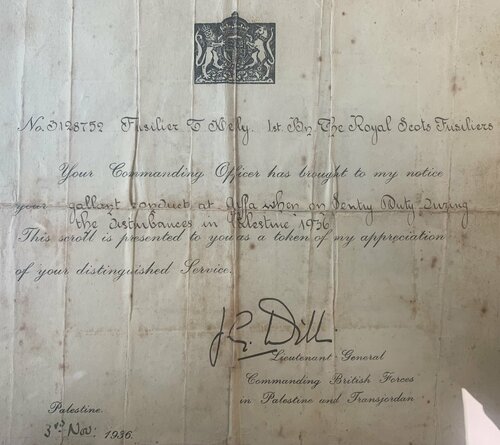 No. 3128752 Fusilier T 1st. Bn The Royal Scots Fusiliers
Your Commanding Officer has brought to my notice
your gallant conduct at Jaffa when on Sentry Duty During
the Disturbances in Palestine 1936
This scroll is presented to you as a token of my appreciation
of your distinguished Service.
J.G. Dill.
Lieutenant-General
Commanding British Forces
in Palestine and Transjordan
Palestine.
3rd Nov: 1936.